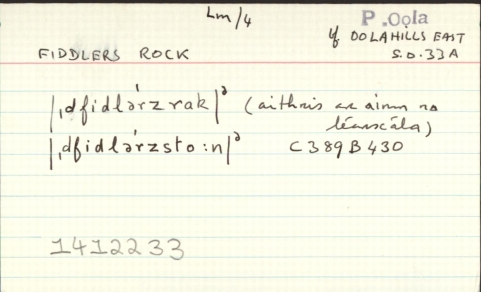 Lm/4
P. Oola
of OOLAHILLS EAST
FIDDLERS ROCK
S.O. 33A
|ˌdfidlərˈz rak|ᵊ (aithris ar ainm na
léarscála)
|ˌdfidlərˈzsto:n|ᵊ C389B430
1412233